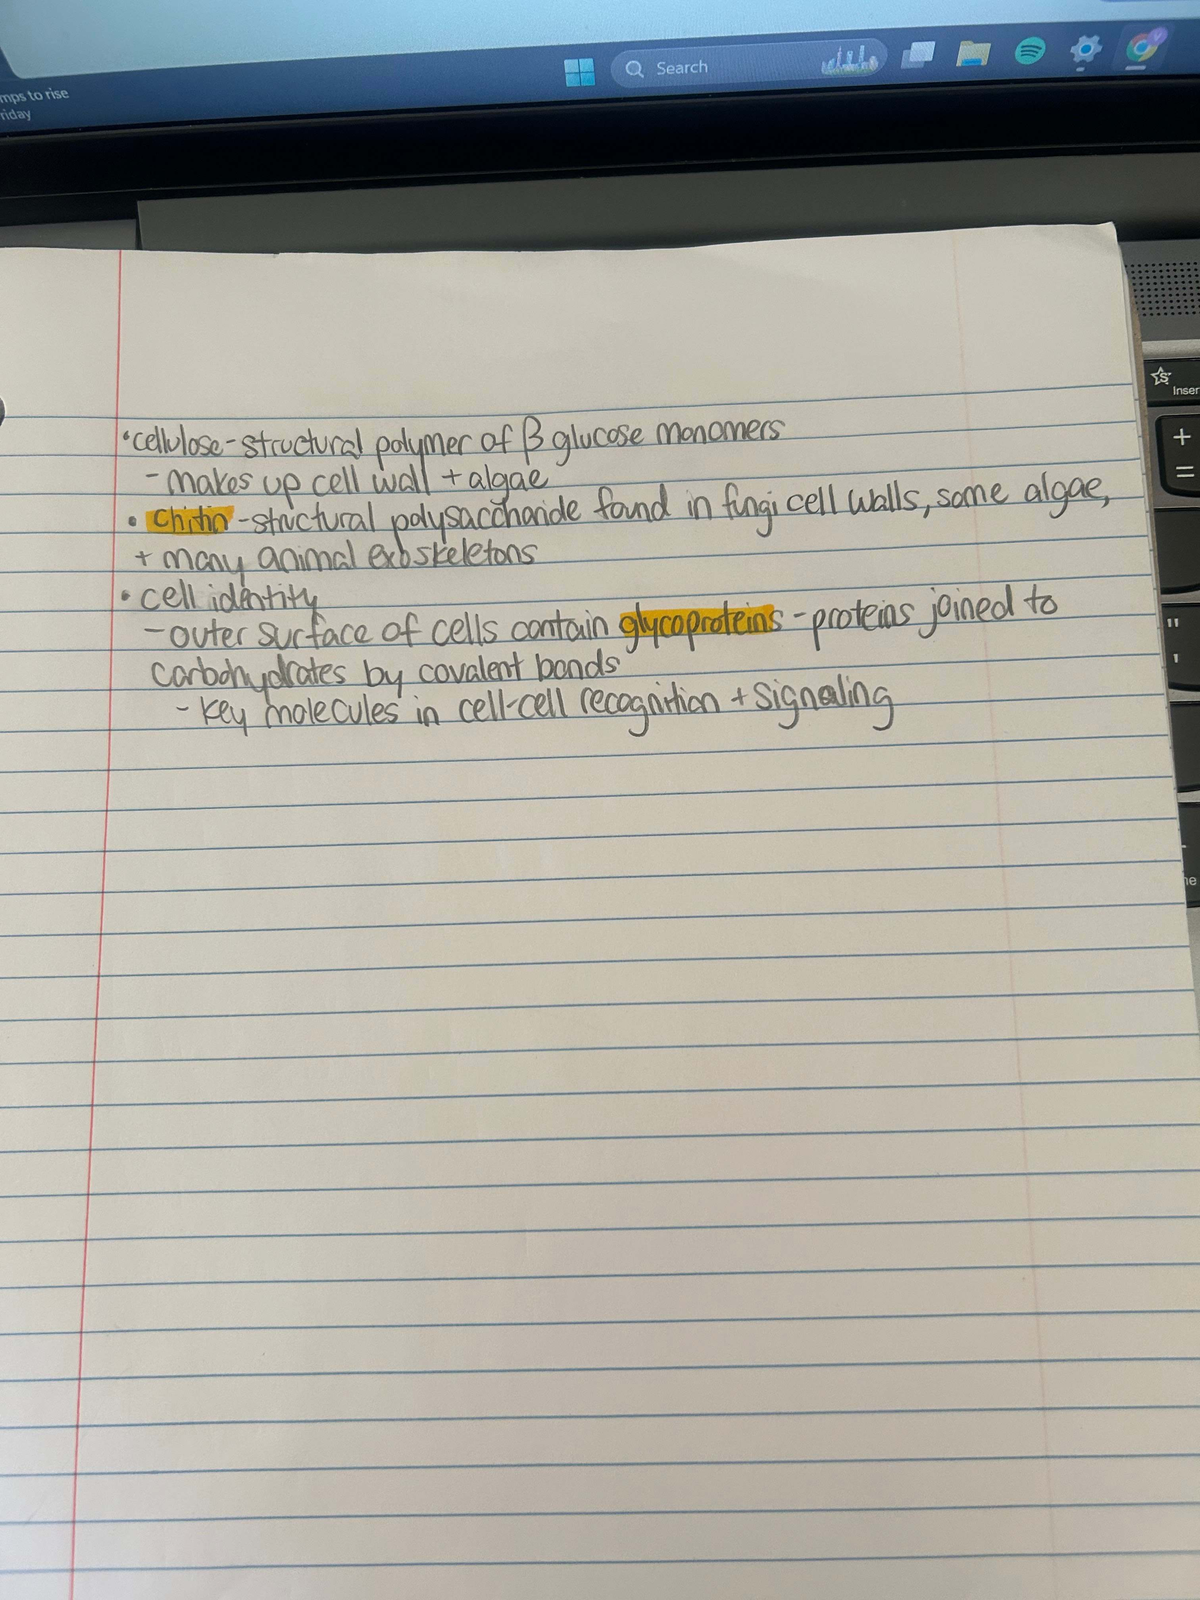 mps to rise
riday
Search
Inser
+
=
"
'
he
•cellulose-structural polymer of β glucose monomers
-makes up cell wall + algae
• chitin-structural polysaccharide found in fungi cell walls, some algae,
+ many animal exoskeletons
• cell identity
-outer surface of cells contain glycoproteins - proteins joined to
carbohydrates by covalent bonds
- key molecules in cell-cell recognition + signaling